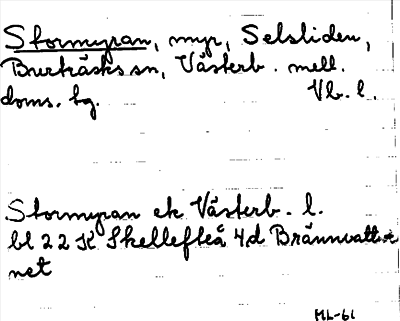 Stormyran, myr, Selsliden,
Burträsks sn, Västerb. mell.
doms. hg. Vb. l.
Stormyran ek Västerb. l.
bl 22 K Skellefteå 4d Brännvatt
net
ML-61